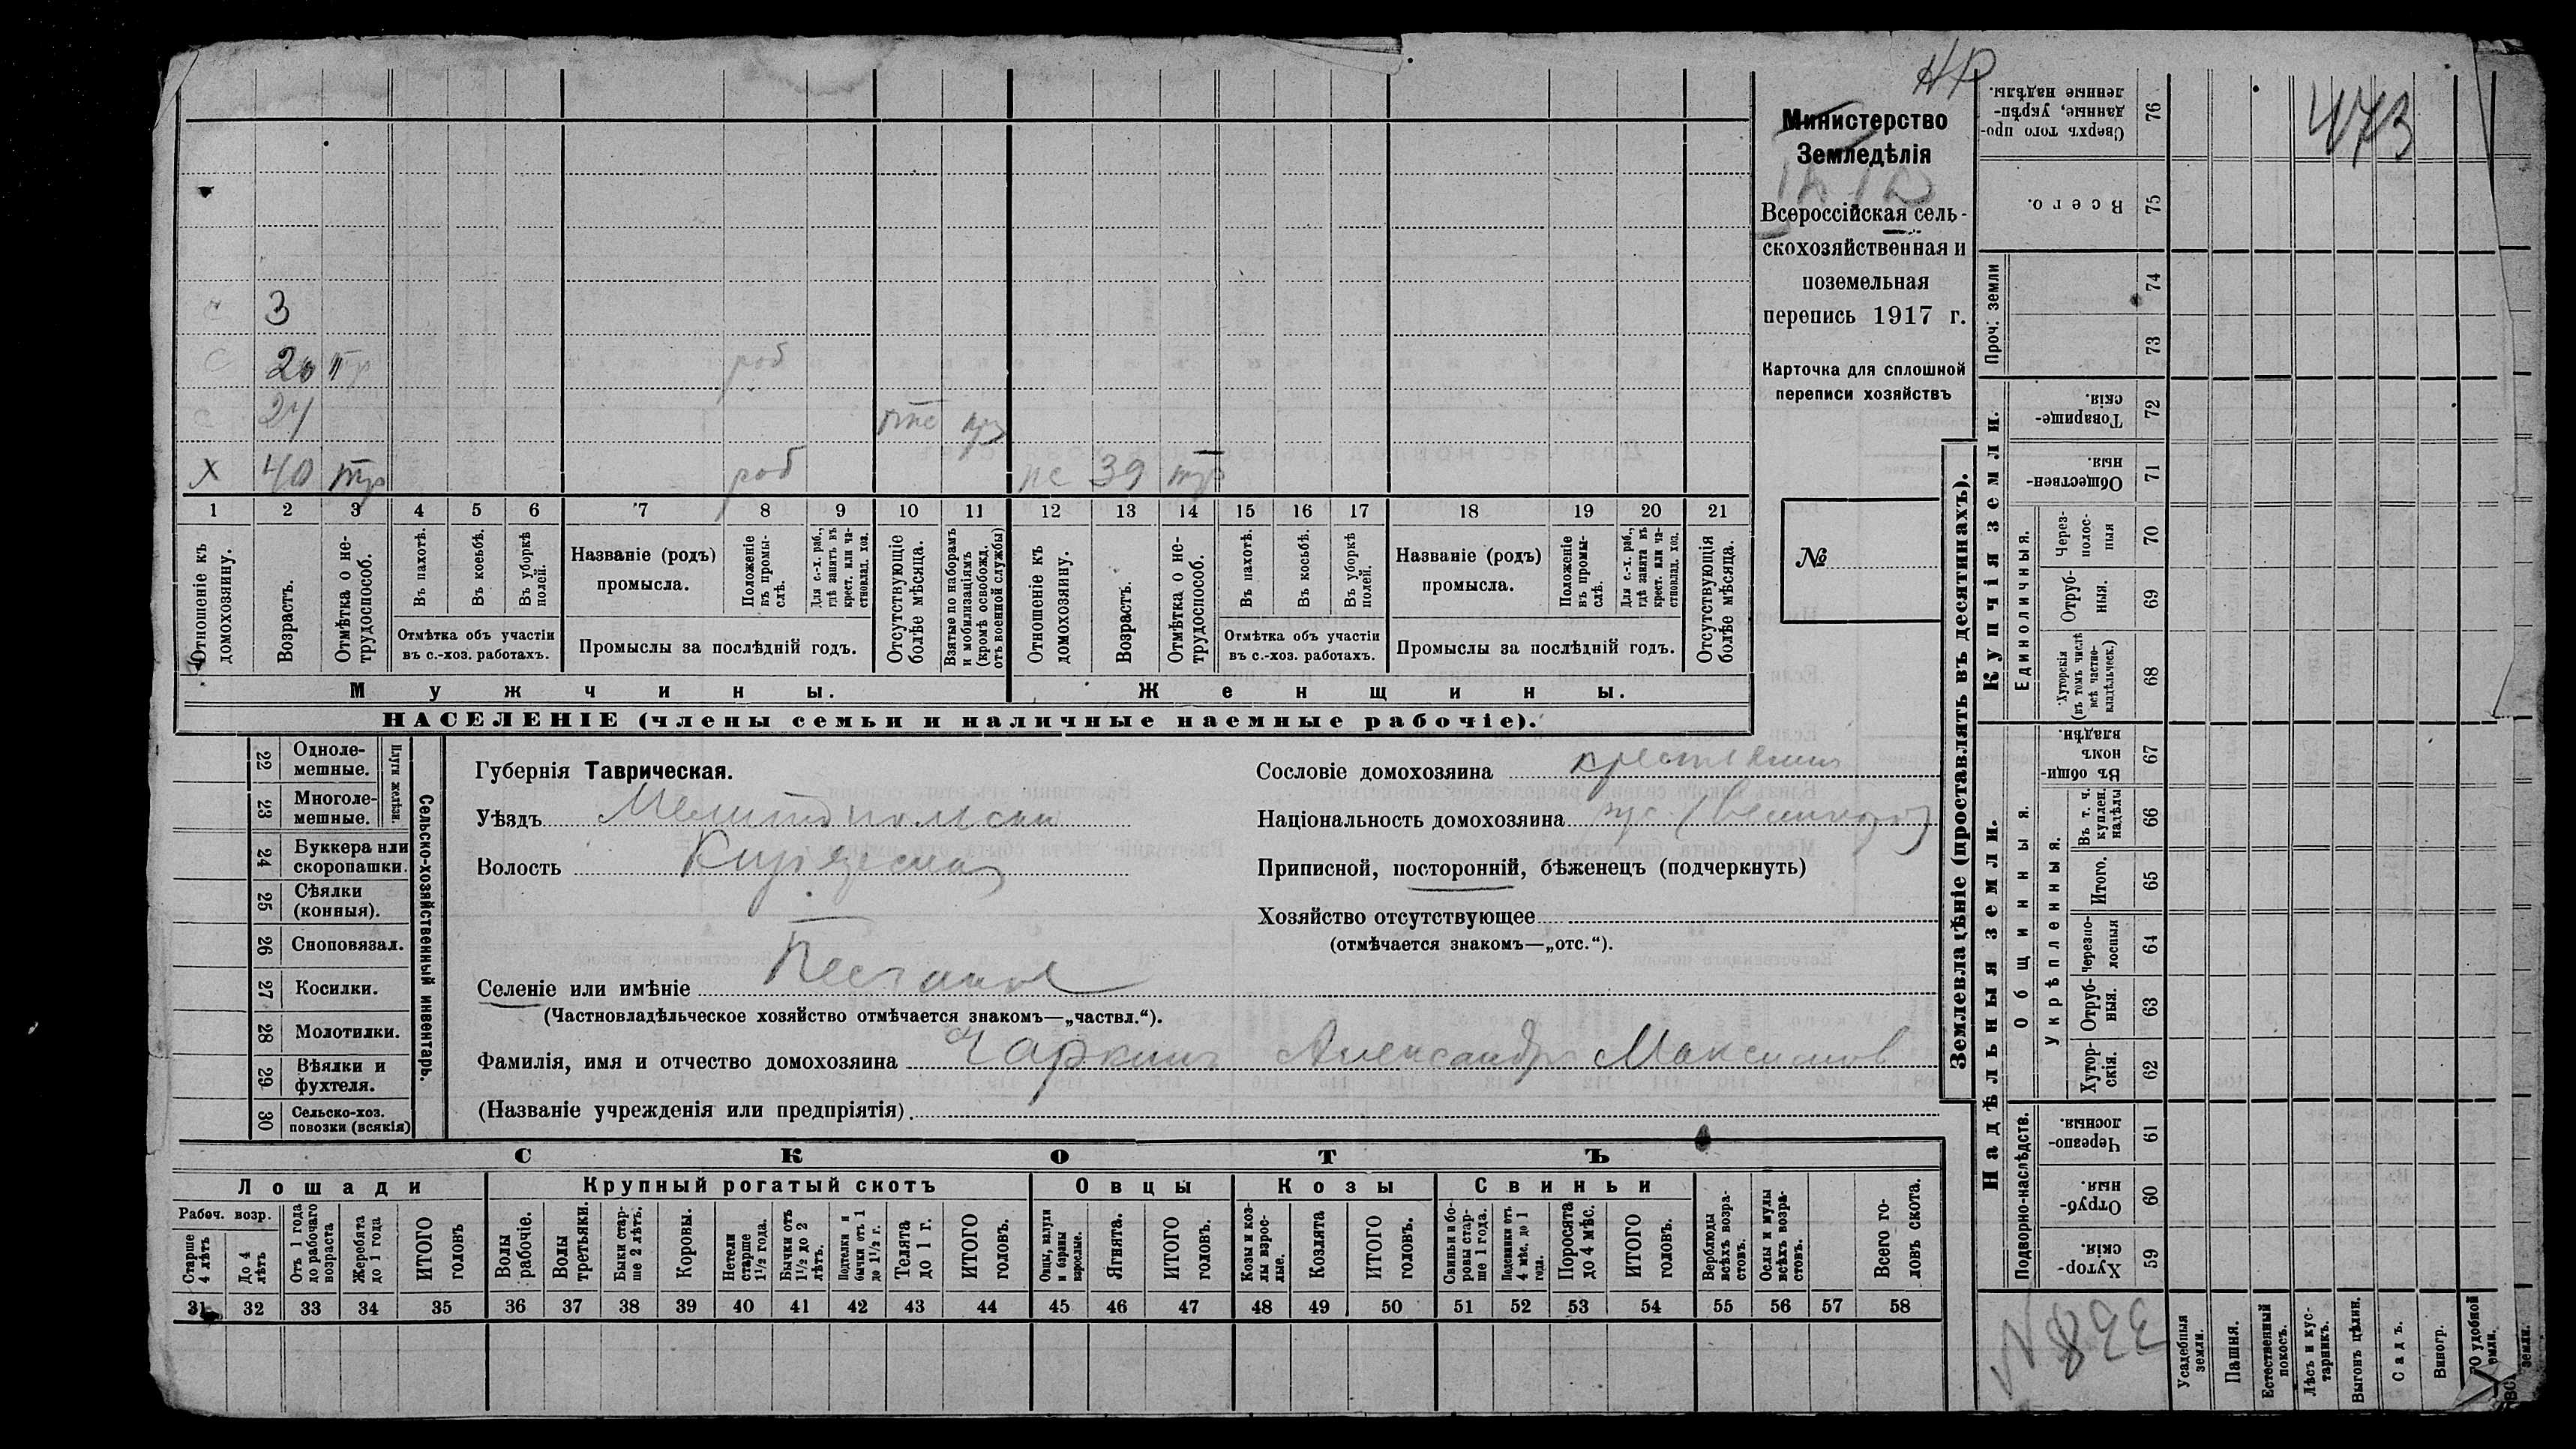 НР
473
Министерство
Земледѣлія
Всероссійская сель-
скохозяйственная и
поземельная
перепись 1917 г.
Карточка для сплошной
переписи хозяйствъ
№
с 3
с 20 тр роб
с 24
Х 40 тр роб 39 тр
1 2 3 4 5 6 7 8 9 10 11 12 13 14 15 16 17 18 19 20 21
Отношеніе къ домохозяину.
Возрастъ.
Отмѣтка о не-трудоспособ.
Въ пахотѣ.
Въ косьбѣ.
Въ уборкѣ полей.
Отмѣтка объ участіи
въ с.-хоз. работахъ.
Названіе (родъ)
промысла.
Положеніе въ промы-слѣ.
Для с.-х. раб., гдѣ занятъ въ крест. или ча-стновлад. хоз.
Промыслы за послѣдній годъ.
Отсутствующіе болѣе мѣсяца.
Взятые по наборамъ и мобилизаціямъ (кромѣ освобожд. отъ военной службы)
Отношеніе къ домохозяину.
Возрастъ.
Отмѣтка о не-трудоспособ.
Въ пахотѣ.
Въ косьбѣ.
Въ уборкѣ полей.
Отмѣтка объ участіи
въ с.-хоз. работахъ.
Названіе (родъ)
промысла.
Положеніе въ промы-слѣ.
Для с.-х. раб., гдѣ занята въ крест. или ча-стновлад. хоз.
Промыслы за послѣдній годъ.
Отсутствующія болѣе мѣсяца.
Мужчины.
Женщины.
НАСЕЛЕНІЕ (члены семьи и наличные наемные рабочіе).
22 Одноле-мешные.
23 Многоле-мешные.
Плуги желѣзн.
24 Буккера или скоропашки.
25 Сѣялки (конныя).
26 Сноповязал.
27 Косилки.
28 Молотилки.
29 Вѣялки и фухтеля.
30 Сельско-хоз. повозки (всякія)
Сельско-хозяйственный инвентарь.
Губернія Таврическая.
Уѣздъ Мелитопольскій
Волость
Селеніе или имѣніе
(Частновладѣльческое хозяйство отмѣчается знакомъ—„частвл.“).
Фамилія, имя и отчество домохозяина Чаркинъ Александръ Максимов
(Названіе учрежденія или предпріятія)
Сословіе домохозяина крестьянинъ
Національность домохозяина
Приписной, посторонній, бѣженецъ (подчеркнуть)
Хозяйство отсутствующее
(отмѣчается знакомъ—„отс.“).
СКОТЪ
Лошади
Крупный рогатый скотъ
Овцы
Козы
Свиньи
Рабоч. возр.
Старше 4 лѣтъ
До 4 лѣтъ
Отъ 1 года до рабочаго возраста
Жеребята до 1 года
ИТОГО головъ
Волы рабочіе.
Волы третьяки.
Быки стар-ше 2 лѣтъ.
Коровы.
Нетели старше 1½ года.
Бычки отъ 1½ до 2 лѣтъ.
Подтелки и бычки отъ 1 до 1½ г.
Телята до 1 г.
ИТОГО головъ.
Овцы, валухи и бараны взрослые.
Ягнята.
ИТОГО головъ.
Козы и коз-лы взрос-лые.
Козлята
ИТОГО головъ.
Свиньи и бо-ровы стар-ше 1 года.
Подсвинки отъ 4 мѣс. до 1 года.
Поросята до 4 мѣс.
ИТОГО головъ.
Верблюды всѣхъ возра-стовъ.
Ослы и мулы всѣхъ возра-стовъ.
Всего го-ловъ скота.
31 32 33 34 35 36 37 38 39 40 41 42 43 44 45 46 47 48 49 50 51 52 53 54 55 56 57 58
Землевладѣніе (проставлять въ десятинахъ).
Купчія земли.
Надѣльныя земли.
Сверхъ того про-данные, укрѣп-ленные надѣлы. 76
Всего. 75
Проч. земли 74 73
Товарище-скія. 72
Обществен-ныя. 71
Единоличныя.
Через-полос-ныя 70
Отруб-ныя. 69
Хуторскія (въ томъ числѣ всѣ частно-владѣльческ.) 68
Общинныя.
Въ общи-номъ владѣн. 67
Укрѣпленныя.
Въ т. ч. куплен. надѣлы 66
Итого. 65
Черезпо-лосныя 64
Отруб-ныя. 63
Хутор-скія. 62
Подворно-наслѣдств.
Черезпо-лосныя. 61
Отруб-ныя. 60
Хутор-скія. 59
Усадебныя земли.
Пашня.
Естественный покосъ.
Лѣсъ и кус-тарникъ.
Выгонъ цѣлин.
Садъ.
Виногр.